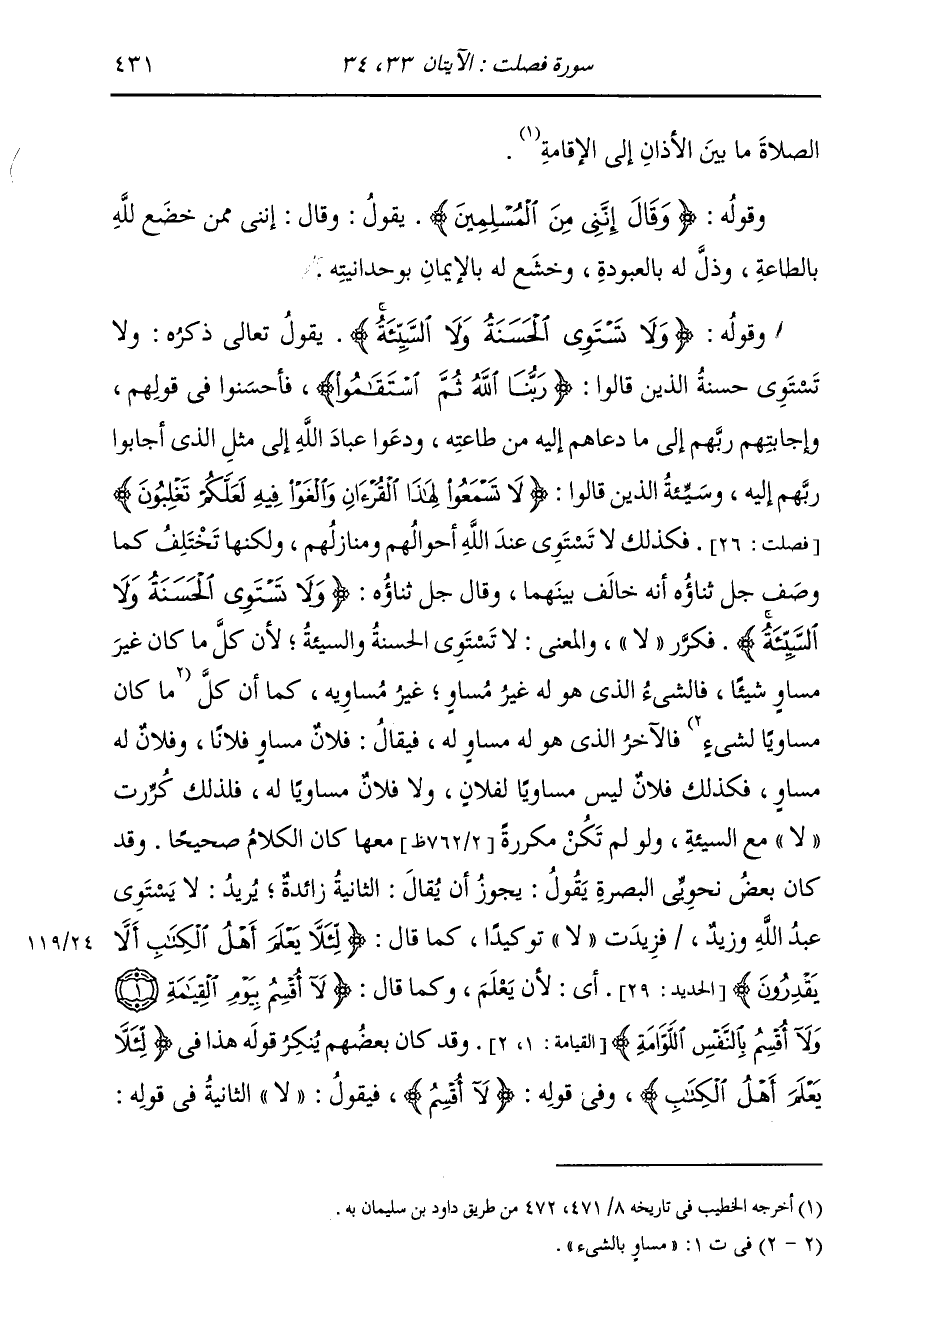 سورة فصلت : الآيتان ٣٣، ٣٤ ٤٣١
الصلاةَ ما بينَ الأذانِ إلى الإقامةِ(١) .
وقولُه : ﴿ وَقَالَ إِنَّنِى مِنَ ٱلْمُسْلِمِينَ ﴾ . يقولُ : وقال : إننى ممن خضَع للَّهِ
بالطاعةِ ، وذلَّ له بالعبودةِ ، وخشَع له بالإيمانِ بوحدانيتِه .
/ وقولُه : ﴿ وَلَا تَسْتَوِى ٱلْحَسَنَةُ وَلَا ٱلسَّيِّئَةُ ۚ ﴾ . يقولُ تعالى ذكرُه : ولا
تَسْتَوِى حسنةُ الذين قالوا : ﴿ رَبُّنَا ٱللَّهُ ثُمَّ ٱسْتَقَـٰمُوا۟ ﴾ ، فأحسَنوا فى قولِهم ،
وإجابتِهم ربَّهم إلى ما دعاهم إليه من طاعتِه ، ودعَوا عبادَ اللَّهِ إلى مثلِ الذى أجابوا
ربَّهم إليه ، وسَيِّئةُ الذين قالوا : ﴿ لَا تَسْمَعُوا۟ لِهَـٰذَا ٱلْقُرْءَانِ وَٱلْغَوْا۟ فِيهِ لَعَلَّكُمْ تَغْلِبُونَ ﴾
[ فصلت : ٢٦ ] . فكذلك لا تَسْتَوِى عندَ اللَّهِ أحوالُهم ومنازلُهم ، ولكنها تَخْتَلِفُ كما
وصَف جل ثناؤُه أنه خالَف بينَهما ، وقال جل ثناؤُه : ﴿ وَلَا تَسْتَوِى ٱلْحَسَنَةُ وَلَا
ٱلسَّيِّئَةُ ۚ ﴾ . فكرَّر « لا » ، والمعنى : لا تَسْتَوِى الحسنةُ والسيئةُ ؛ لأن كلَّ ما كان غيرَ
مساوٍ شيئًا ، فالشىءُ الذى هو له غيرُ مُساوٍ ؛ غيرُ مُساويه ، كما أن كلَّ (٢ما كان
مساويًا لشىءٍ٢) فالآخرُ الذى هو له مساوٍ له ، فيقالُ : فلانٌ مساوٍ فلانًا ، وفلانٌ له
مساوٍ ، فكذلك فلانٌ ليس مساويًا لفلانٍ ، ولا فلانٌ مساويًا له ، فلذلك كُرِّرت
« لا » مع السيئةِ ، ولو لم تَكُنْ مكررةً [ ٧٦٢/٢ظ ] معها كان الكلامُ صحيحًا . وقد
كان بعضُ نحويِّى البصرةِ يَقُولُ : يجوزُ أن يُقالَ : الثانيةُ زائدةٌ ؛ يُريدُ : لا يَسْتَوِى
عبدُ اللَّهِ وزيدٌ ، / فزِيدَت « لا » توكيدًا ، كما قال : ﴿ لِّئَلَّا يَعْلَمَ أَهْلُ ٱلْكِتَـٰبِ أَلَّا ١١٩/٢٤
يَقْدِرُونَ ﴾ [ الحديد : ٢٩ ] . أى : لأن يَعْلَمَ ، وكما قال : ﴿ لَآ أُقْسِمُ بِيَوْمِ ٱلْقِيَـٰمَةِ (١)
وَلَآ أُقْسِمُ بِٱلنَّفْسِ ٱللَّوَّامَةِ ﴾ [ القيامة : ١، ٢ ] . وقد كان بعضُهم يُنكِرُ قولَه هذا فى ﴿ لِّئَلَّا
يَعْلَمَ أَهْلُ ٱلْكِتَـٰبِ ﴾ ، وفى قولِه : ﴿ لَآ أُقْسِمُ ﴾ ، فيقولُ : « لا » الثانيةُ فى قولِه :
(١) أخرجه الخطيب فى تاريخه ٨/ ٤٧١، ٤٧٢ من طريق داود بن سليمان به .
(٢ - ٢) فى ت ١ : « مساوٍ بالشىء » .